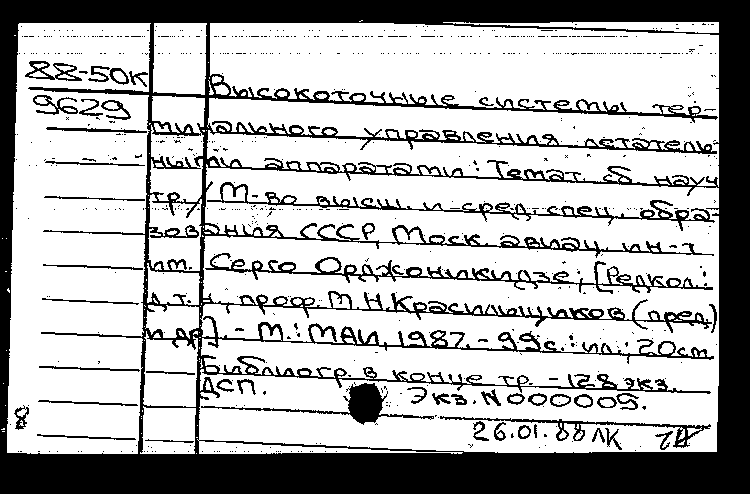 88-50К
9629
Высокоточные системы тер-
минального управления летатель
ными аппаратами: Темат. сб. науч
тр. / М-во высш. и сред. спец. обра-
зования СССР, Моск. авиац. ин-т
им. Серго Орджоникидзе; [Редкол.:
д.т.н., проф. М.Н.Красильщиков (пред.)
и др]. - М.: МАИ, 1987. - 99с.: ил.; 20см.
Библиогр. в конце тр. - 128 экз.
ДСП. Экз. N 000009.
8
26.01.88 ЛК